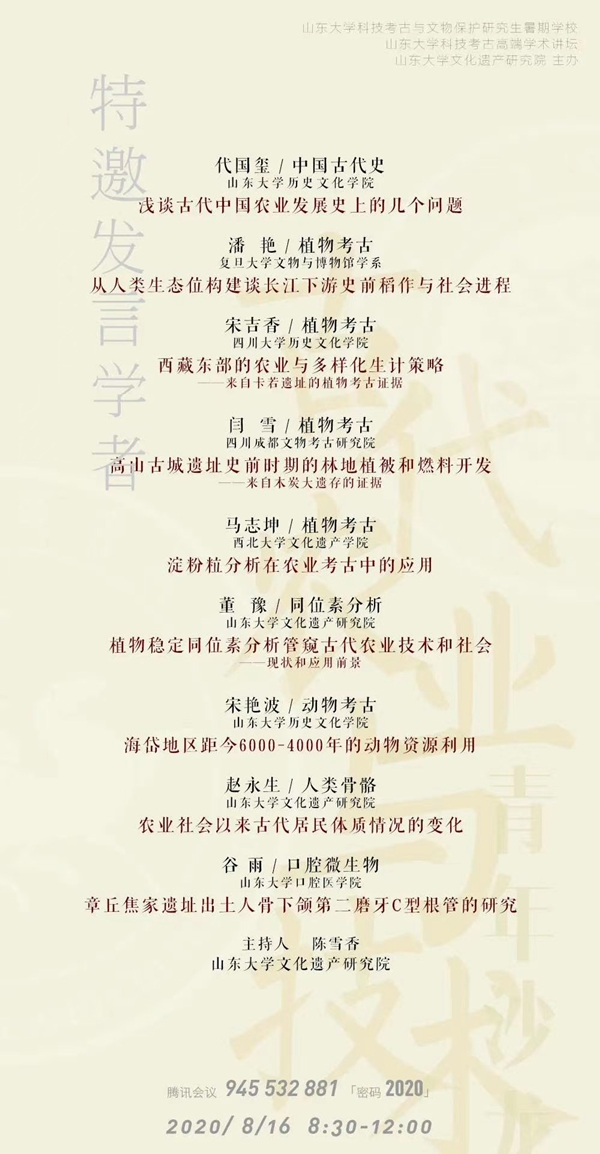 山东大学科技考古与文物保护研究生暑期学校
山东大学科技考古高端学术讲坛
山东大学文化遗产研究院 主办
特邀发言学者
代国玺 / 中国古代史
山东大学历史文化学院
浅谈古代中国农业发展史上的几个问题
潘 艳 / 植物考古
复旦大学文物与博物馆学系
从人类生态位构建谈长江下游史前稻作与社会进程
宋吉香 / 植物考古
四川大学历史文化学院
西藏东部的农业与多样化生计策略
——来自卡若遗址的植物考古证据
闫 雪 / 植物考古
四川成都文物考古研究院
高山古城遗址史前时期的林地植被和燃料开发
——来自木炭大遗存的证据
马志坤 / 植物考古
西北大学文化遗产学院
淀粉粒分析在农业考古中的应用
董 豫 / 同位素分析
山东大学文化遗产研究院
植物稳定同位素分析管窥古代农业技术和社会
——现状和应用前景
宋艳波 / 动物考古
山东大学历史文化学院
海岱地区距今6000-4000年的动物资源利用
赵永生 / 人类骨骼
山东大学文化遗产研究院
农业社会以来古代居民体质情况的变化
谷 雨 / 口腔微生物
山东大学口腔医学院
章丘焦家遗址出土人骨下颌第二磨牙C型根管的研究
主持人 陈雪香
山东大学文化遗产研究院
古代农业与技术
青年沙龙
腾讯会议 945 532 881 「密码 2020」
2020/ 8/16 8:30-12:00